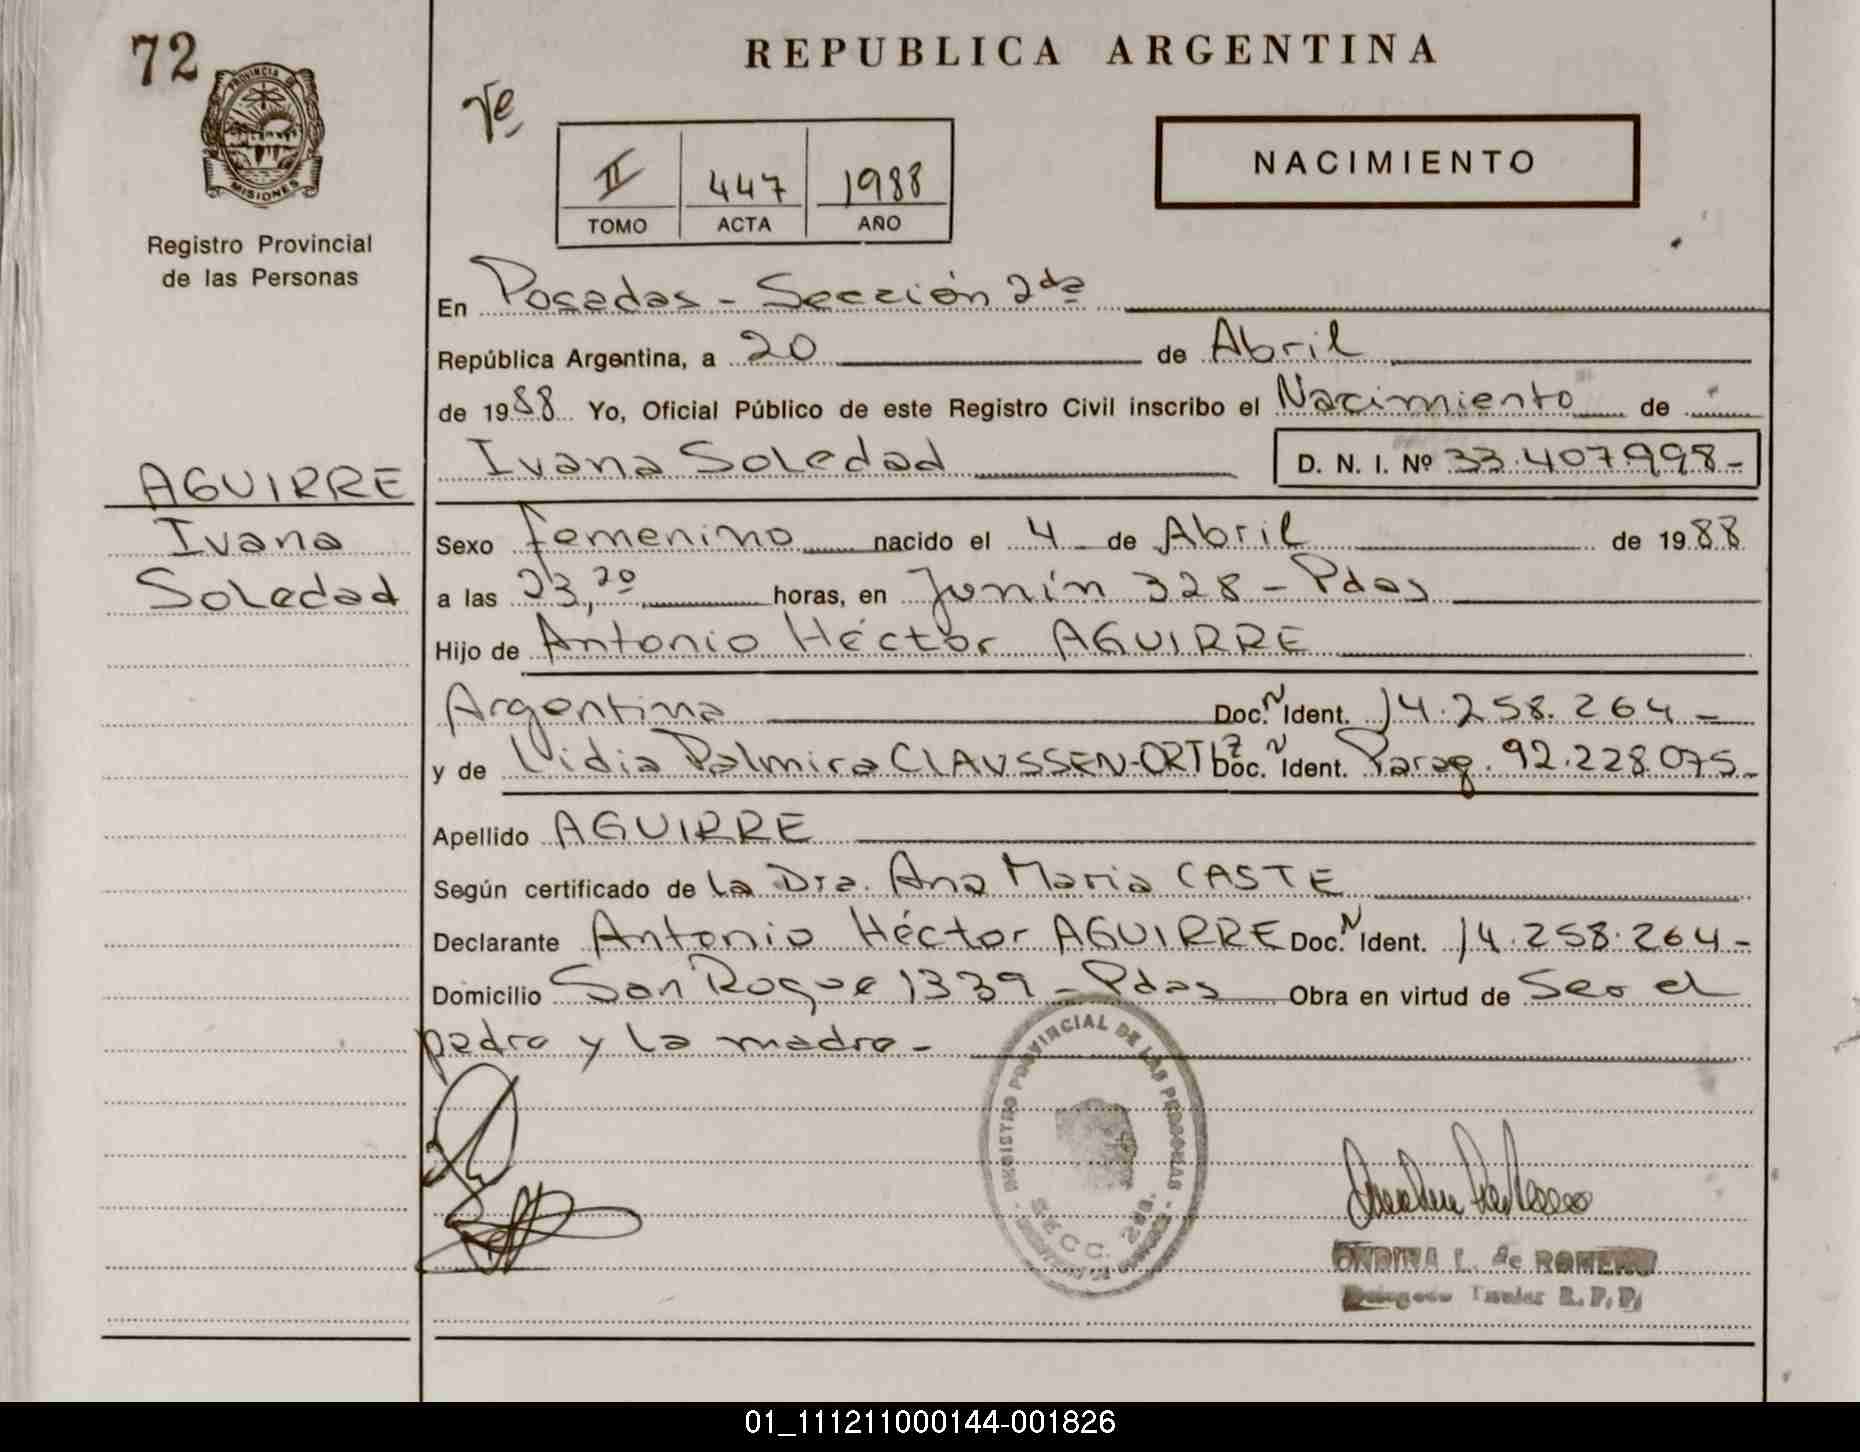 72
REPUBLICA ARGENTINA
PROVINCIA DE
MISIONES
Registro Provincial
de las Personas
II 447 1988
TOMO ACTA AÑO
NACIMIENTO
En Posadas - Sección 2da
República Argentina, a 20 de Abril
de 1988 Yo, Oficial Público de este Registro Civil inscribo el Nacimiento de
Ivana Soledad D. N. I. Nº 33.407.998-
AGUIRRE
Ivana
Soledad
Sexo femenino nacido el 4 de Abril de 1988
a las 23,20 horas, en Junín 328 - Pdas
Hijo de Antonio Héctor AGUIRRE
Argentina Doc. N Ident. 14.258.264-
y de Lidia Palmira CLAUSSEN-ORTIZ Doc. N Ident. Parag. 92.228.075-
Apellido AGUIRRE
Según certificado de la Dra. Ana Maria CASTE
Declarante Antonio Héctor AGUIRRE Doc. N Ident. 14.258.264-
Domicilio San Roque 1339 - Pdas Obra en virtud de Ser el
padre y la madre -
REGISTRO PROVINCIAL DE LAS PERSONAS
SECC. 2da.
ONDINA L. de ROMERO
Titular R.P.P.
01_111211000144-001826